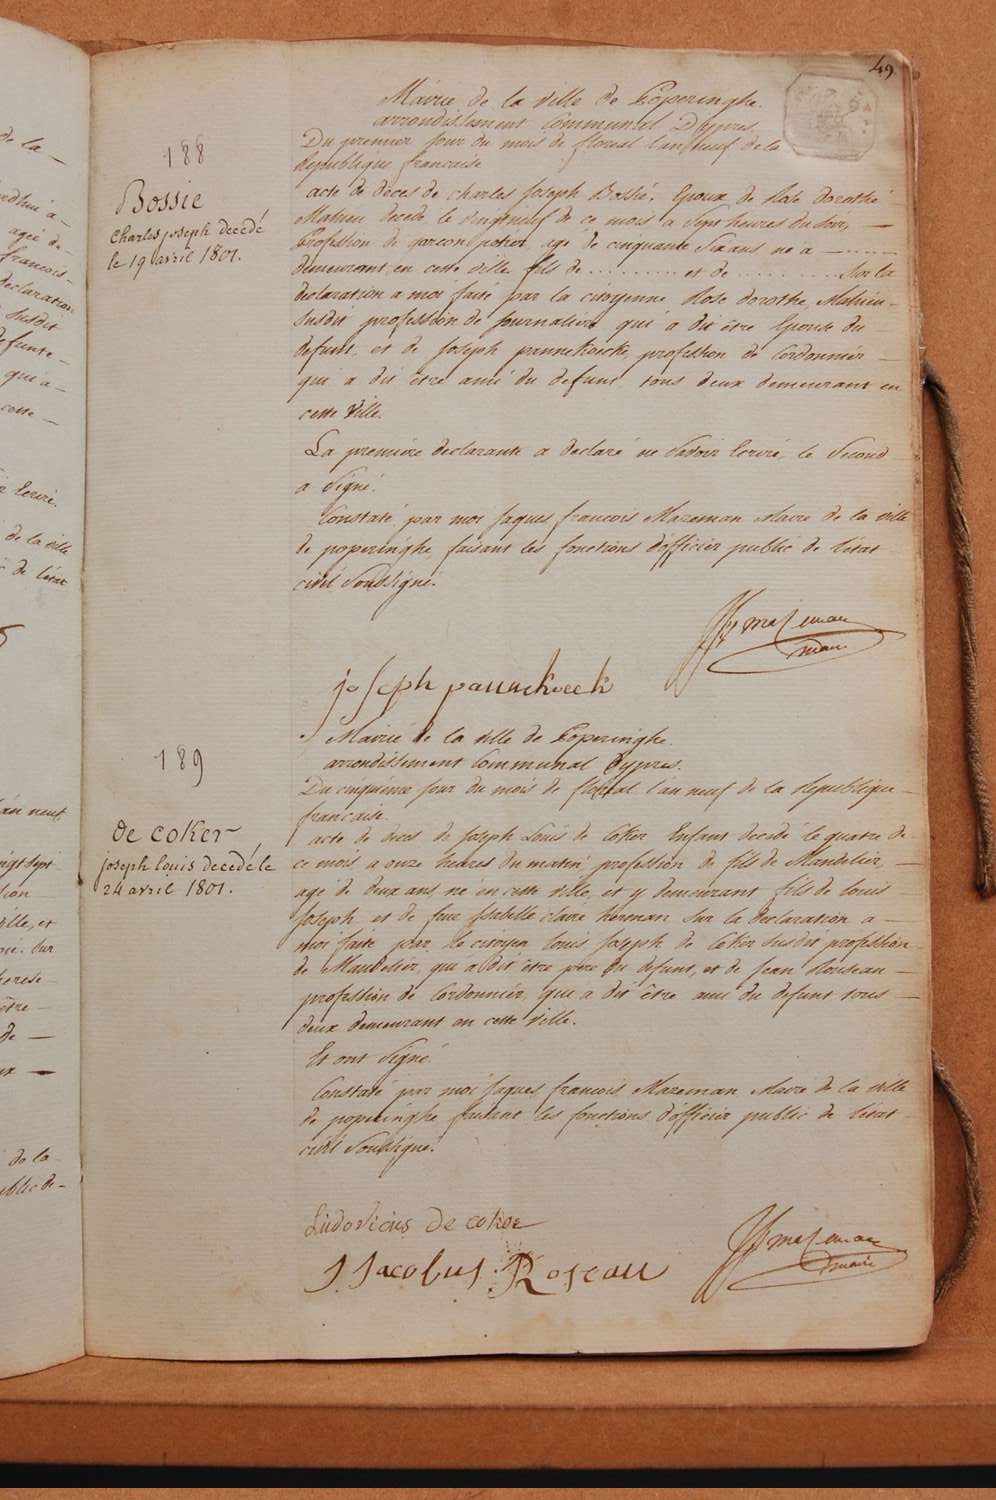 49.
188
Bossie
Charles joseph decedé
le 19 avril 1801.
Mairie de la ville de Poperinghe.
arrondissement Communal Dypres.
Du premier jour du mois de floreal l'an neuf de la
Republique francaise
acte de déces de charles Joseph Bossié, Epoux de Rose dorothé
Mahieu decede le vingtneuf de ce mois a Sept heures du soir, —
Profession de garcon potier age de cinquante Six ans, né a —
demeurant en cette ville fils de .......... et de .......... Sur la
declaration a moi faite par la citoyenne Rose dorothe Mahieu
Susdit profession de journaliere qui a dit être Epouse du —
defunt, et de Joseph pannekoucke, profession de Cordonnier —
qui a dit être ami du defunt, tous deux demeurant en
cette Ville.
La premiere declarante a declaré ne Savoir Ecrire, le Second
a Signé.
Constaté par moi Jaques francois Mazeman Maire de la ville
de poperinghe faisant les fonctions d'officier public de l'etat
civil Soussigné.
maire
joseph pannekoeck
189
De coker
joseph louis decedé le
24 avril 1801.
Mairie de la ville de Poperinghe.
arrondissement Communal Dypres.
Du cinquieme jour du mois de floreal l'an neuf de la Republique
francaise.
acte de deces de Joseph Louis de Coker Enfant decedé le quatre de
ce mois a onze heures du matin, profession de fils de Mandelier, —
agé de deux ans, né en cette ville, et y demeurant fils de louis
Joseph et de feue Isabelle claire herman Sur la declaration a —
moi faite par le citoyen louis Joseph de Coker Susdit profession
de Mandelier, qui a dit être pere du defunt, et de Jean Rouseau —
profession de Cordonnier, qui a dit être ami du defunt tous —
deux demeurant en cette ville.
Et ont Signé.
Constaté par moi Jaques francois Mazeman Maire de la ville
de poperinghe faisant les fonctions d'officier public de l'etat
civil Soussigné.
Ludovicus De coker
J. Jacobus Roseau
maire